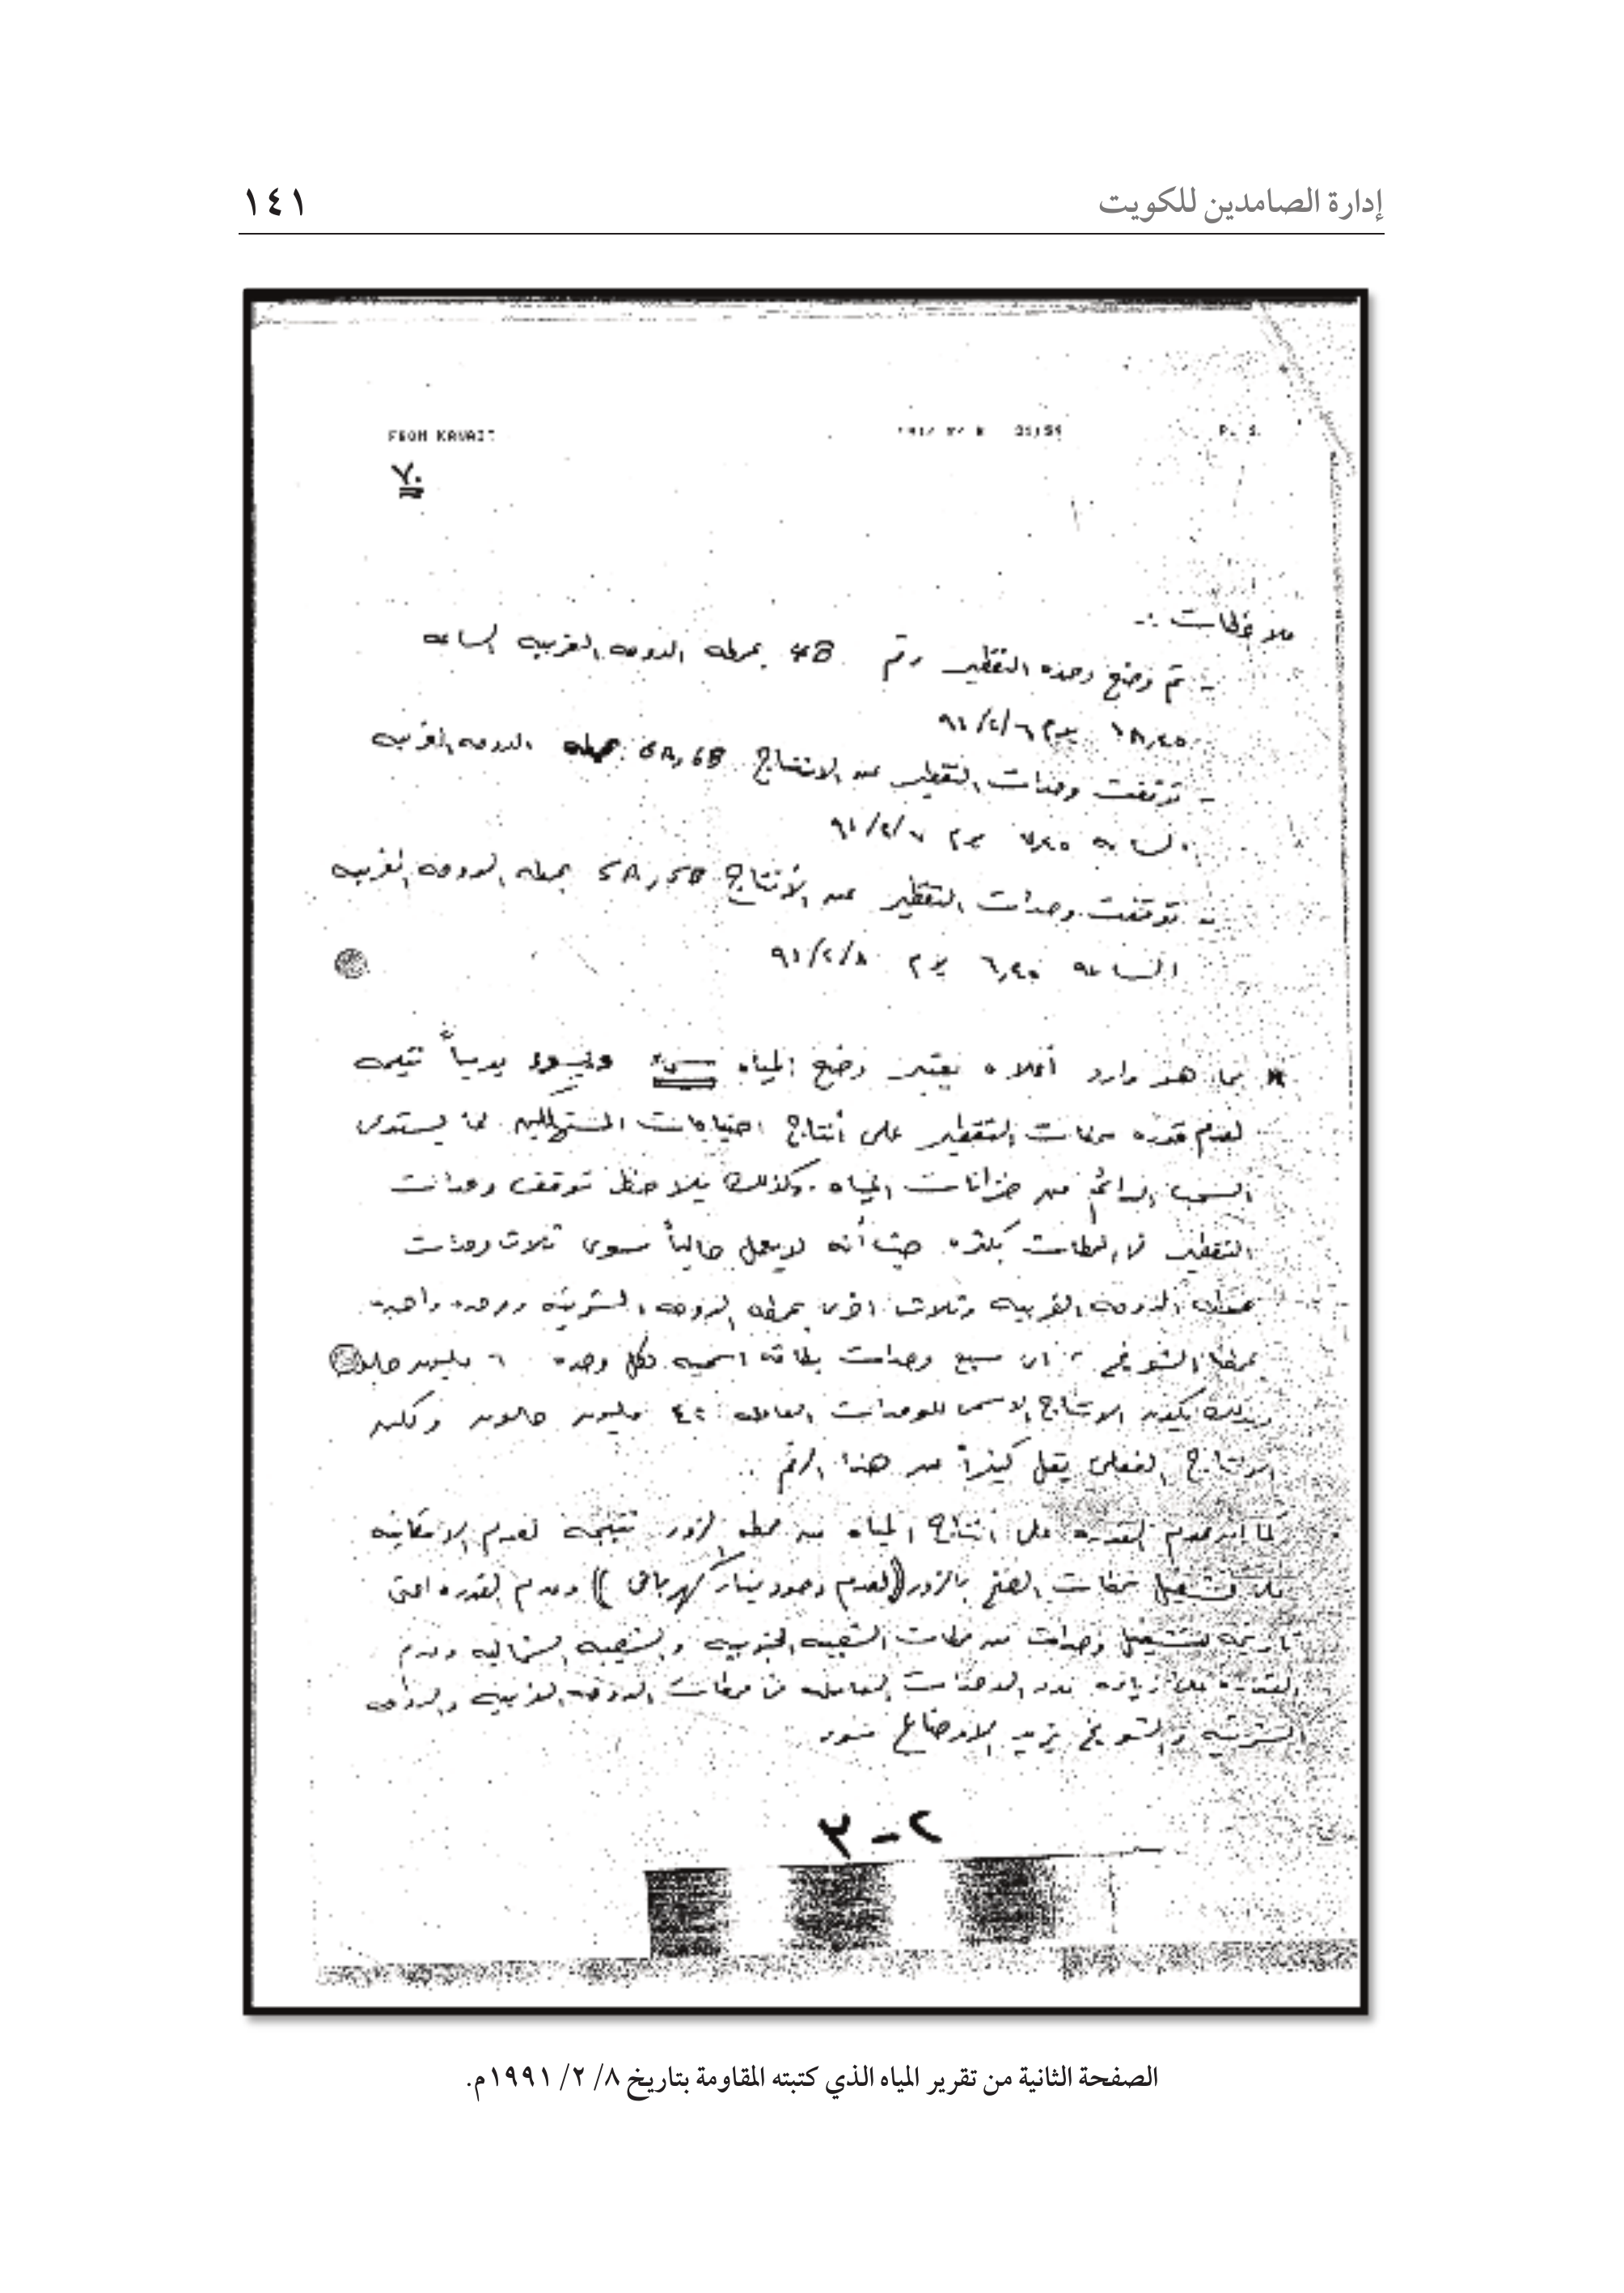 إدارة الصامدين للكويت
١٤١
FROM KAWAIT
٧٠
ملاحظات :-
- تم وضع وحده التقطير رقم 4B بمحطه الدوحه الغربيه الساعه
يوم ٩١/٢/٦
- توقفت وحدات التقطير عن الانتاج 6A,6B بمحطه الدوحه الغربيه
الساعه يوم ٩١/٢/٧
- توقفت وحدات التقطير عن الأنتاج 5A,5B بمحطه الدوحه الغربيه
الساعه ٦,٤٥ يوم ٩١/٢/٨
* مما هو وارد أعلاه يعتبر وضع المياه سيء ويسوء يومياً نتيجه
لعدم قدره محطات التقطير على أنتاج احتياجات المستهلكين مما يستدعى
السحب الدائم من خزانات المياه . وكذلك يلاحظ توقف وحدات
التقطير فى المحطات بكثره حيث أنه لا يعمل حالياً سوى ثلاث وحدات
بمحطه الدوحه الغربيه وثلاث اخرى بمحطه الدوحه الشرقيه ووحده واحده
بمحطه الشويخ ، اى سبع وحدات بطاقه اسميه لكل وحده ٦ مليون جالون
وبذلك يكون الانتاج الاسمى للوحدات العامله ٤٢ مليون جالون ولكن
الانتاج الفعلى يقل كثيراً عن هذا الرقم ..
كما ان عدم القدره على أنتاج المياه من محطه الزور نتيجه لعدم الامكانيه
لتشغيل محطات الضخ بالزور (( لعدم وجود تيار كهربائى )) وعدم القدره حتى
تاريخه لتشغيل وحدات من محطات الشعيبه الجنوبيه والشعيبه الشماليه وعدم
القدره على زياده عدد الوحدات العامله فى محطات الدوحه الغربيه والدوحه
الشرقيه والشويخ يزيد الاوضاع سوء
٢-٣
الصفحة الثانية من تقرير المياه الذي كتبته المقاومة بتاريخ ٨/ ٢/ ١٩٩١م.